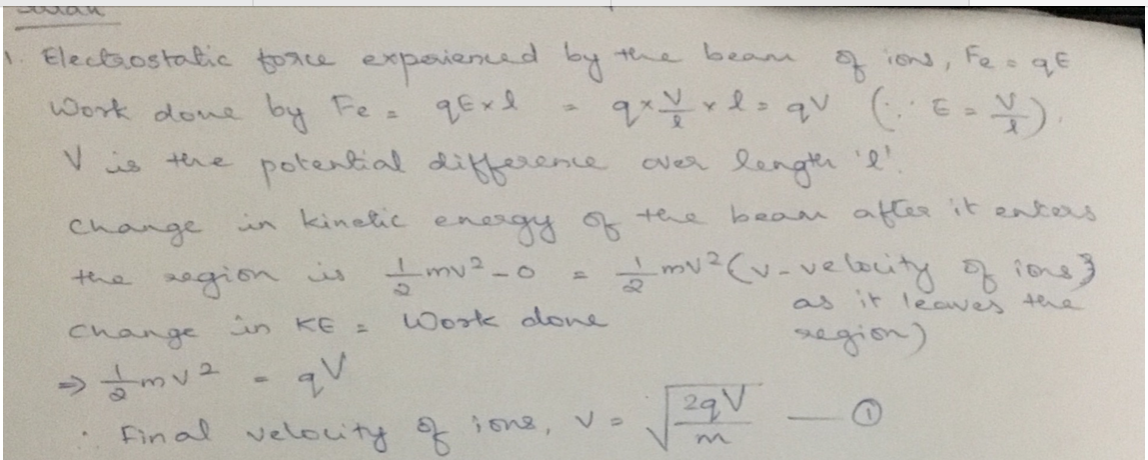 1. Electrostatic force experienced by the beam of ions, Fe = qE
Work done by Fe = qE×l = q×V/l×l = qV (∵ E = V/l).
V is the potential difference over length 'l'.
Change in kinetic energy of the beam after it enters
the region is 1/2 mv² - 0 = 1/2 mv² (v - velocity of ions }
as it leaves the
Change in KE = Work done region)
⇒ 1/2 mv² = qV
∴ Final velocity of ions, v = √(2qV/m) — ①